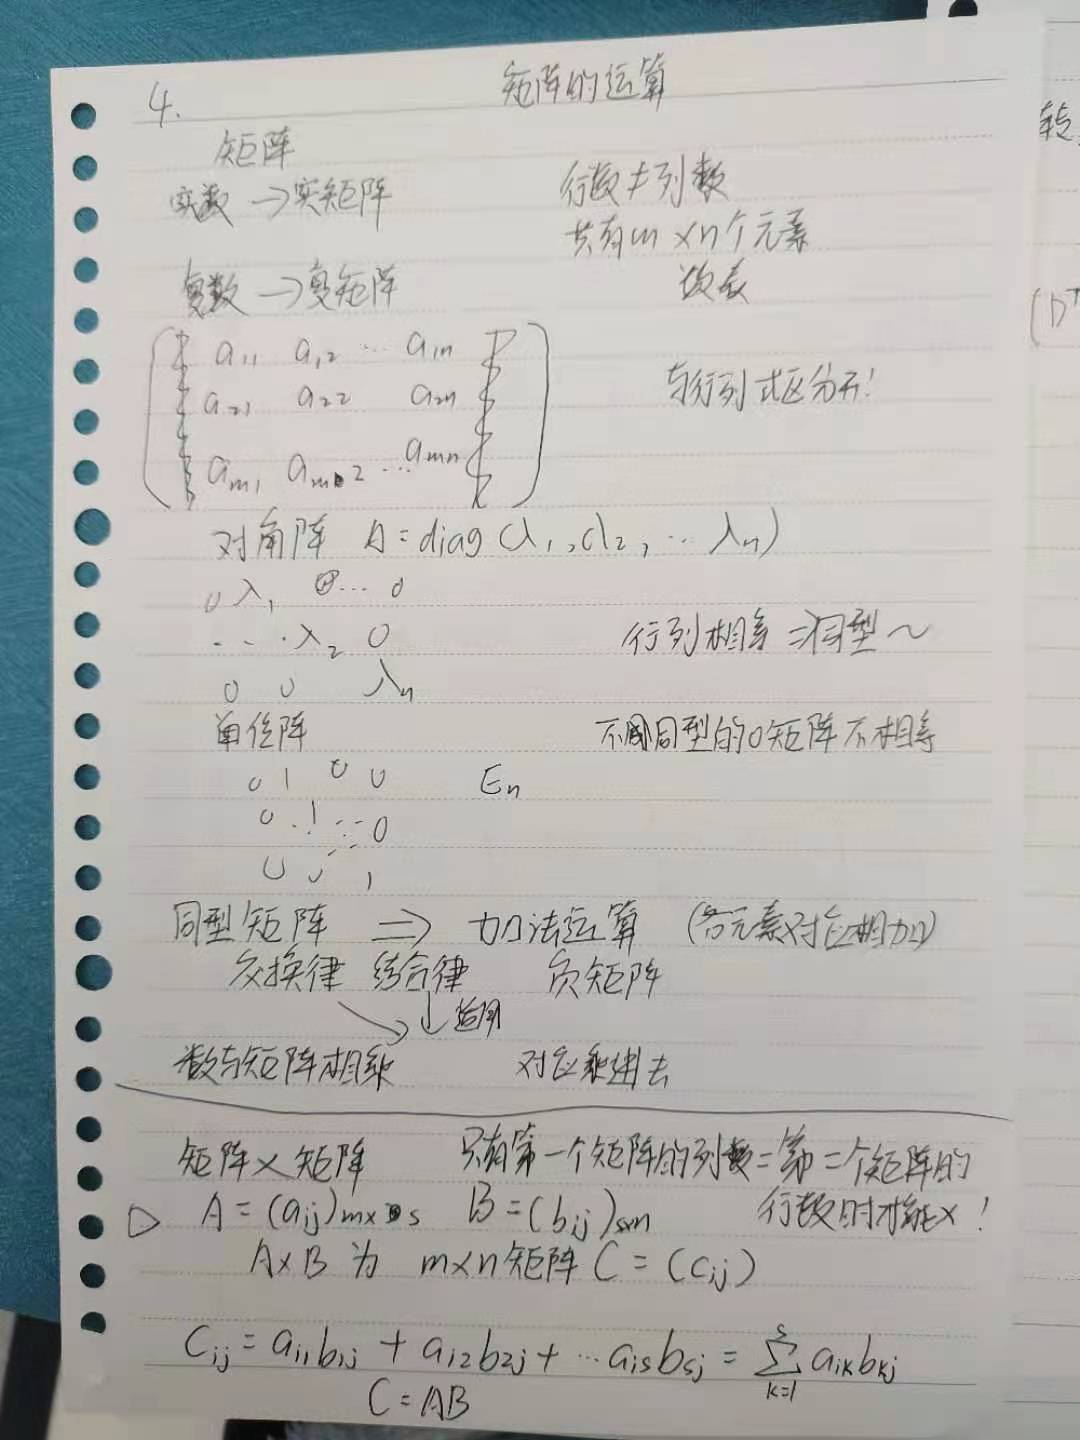 4. 矩阵的运算
矩阵
实数 → 实矩阵 行数≠列数
共有m×n个元素
复数 → 复矩阵 数表
a11 a12 … a1n
a21 a22 a2n 与行列式区分开!
am1 am2 … amn
对角阵 A=diag(λ1, λ2, … λn)
0 λ1 0 … 0
… λ2 0 行列相等 ⇒ 同型~
0 0 λn
单位阵 不同型的0矩阵不相等
0 1 0 0 En
0 1 … 0
0 0 1
同型矩阵 ⇒ 加法运算 (各元素对应相加)
交换律 结合律 负矩阵
适用
数与矩阵相乘 对应乘进去
矩阵×矩阵 只有第一个矩阵的列数=第二个矩阵的
行数时才能×!
▷ A=(aij)m×s B=(bij)s×n
A×B 为 m×n矩阵 C=(cij)
Cij = ai1b1j + ai2b2j + … aisbsj = ∑ s k=1 aikbkj
C=AB
转
(D^T